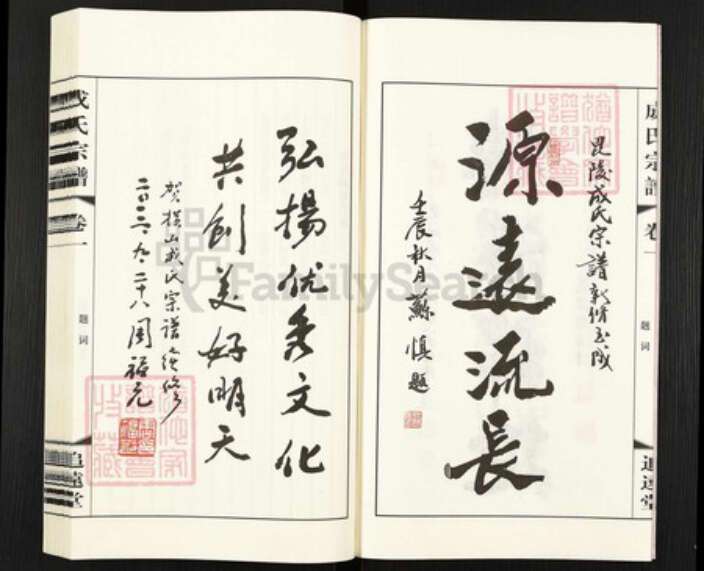 成氏宗譜
卷一
题词
追遠堂
毘陵成氏宗譜新修玉成
源遠流長
壬辰秋月蘇慎題
弘揚优秀文化
共创美好明天
賀横山成氏宗譜續修
二〇一二.九.二十八周福元
成氏宗譜
卷一
题词
追遠堂
FamilySearch